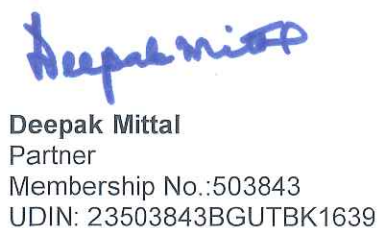 Deepak Mittal
Deepak Mittal
Partner
Membership No.:503843
UDIN: 23503843BGUTBK1639